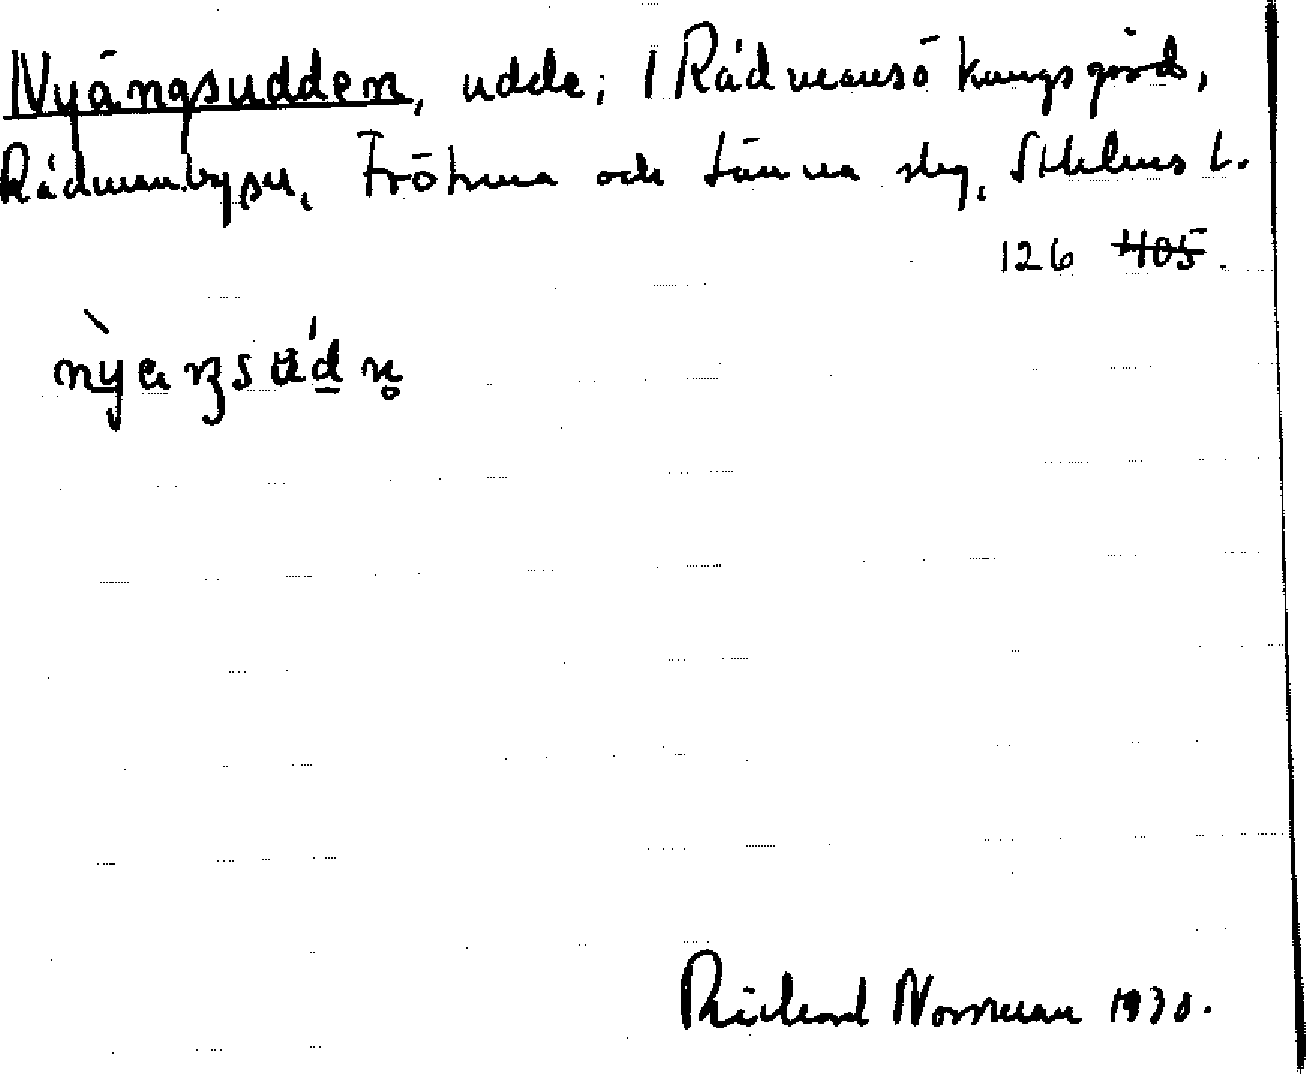 Nyängsudden, udde; i Rådmansö kungsgård,
Rådmanbysn, Frötuna och Länna slg, Sthlms l.
126 405.
Rickard Norrman 1930.